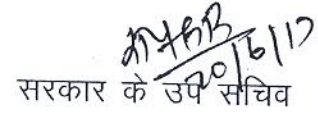 20/6/17
सरकार के उप सचिव